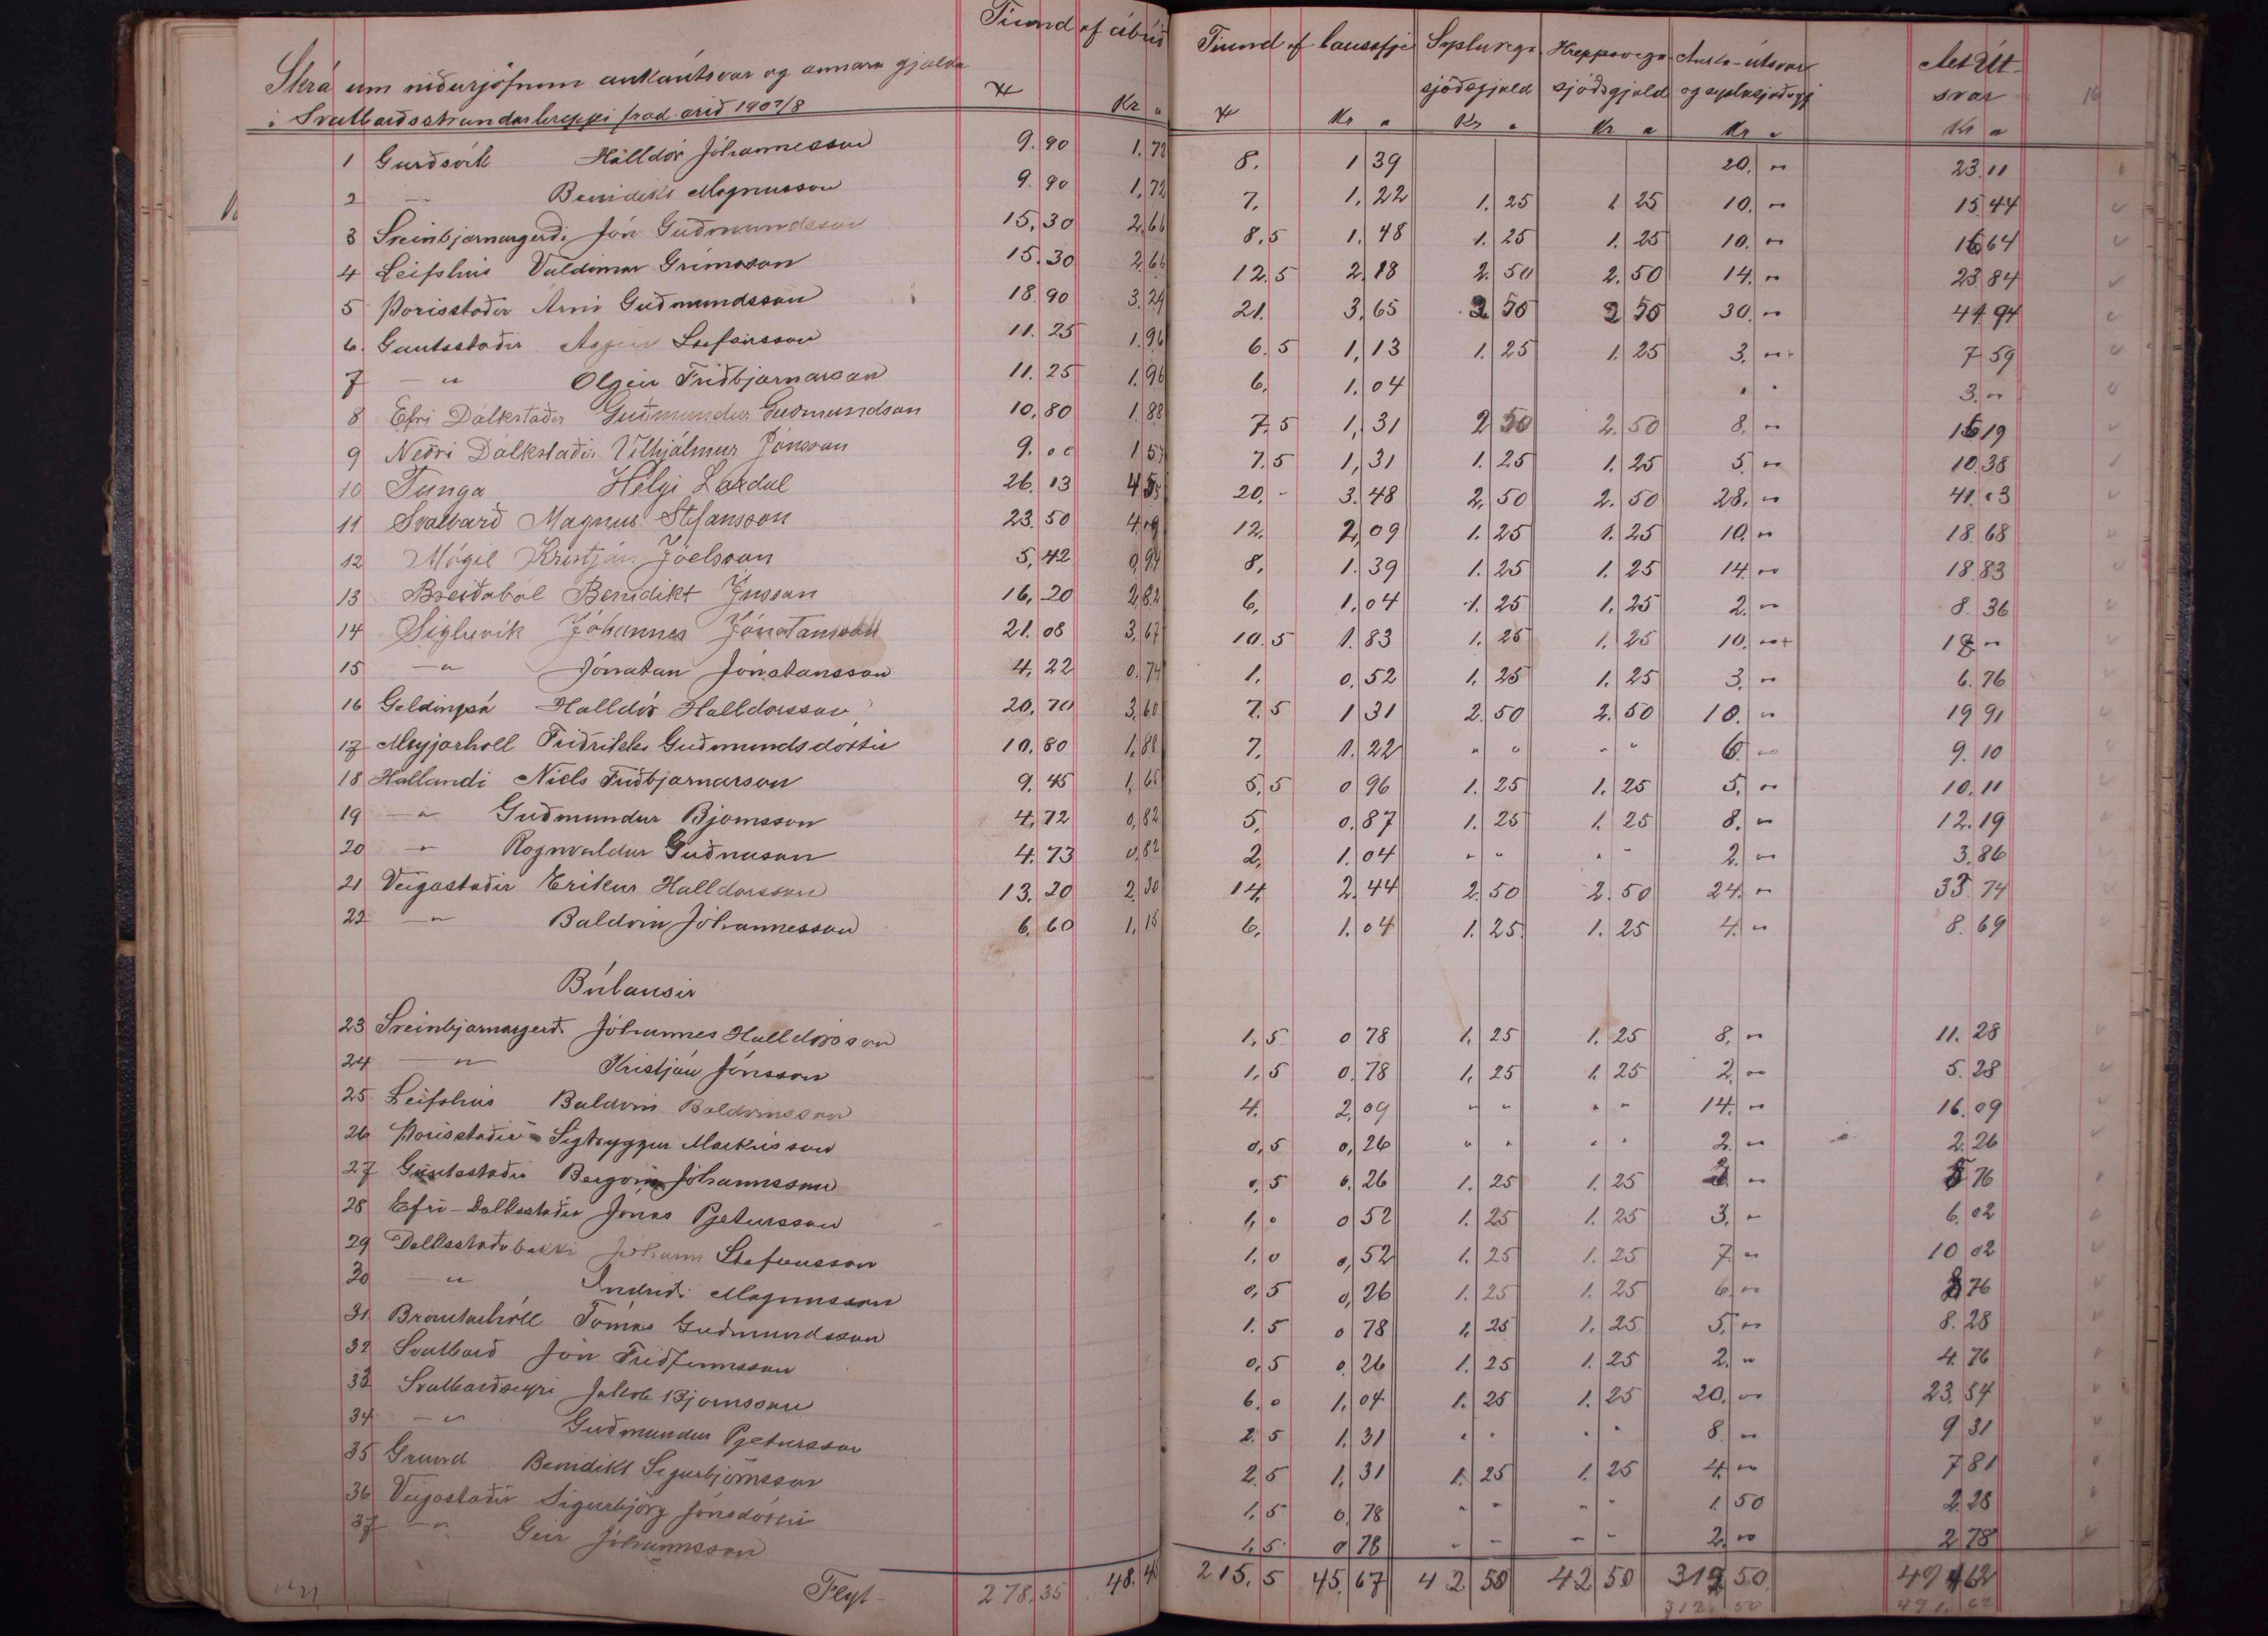 Skrá um niðurjöfnun aukaútsvar og annara gjalda
í Svalbarðsstrandarhreppi frad. árið 1907/8
Tiund af ábúð Tiund af lausafje Sysluvega sjóðsgjald Hreppavega sjóðsgjald Auka-útsvar og syslusjóðsgj Alls Út-svar 16
Kr a Kr a Kr a Kr a Kr a Kr a
1 Garðsvík Halldór Jóhannesson 9.90 1,72 8. 1 39 20. " 23.11
2 — Benidikt Magnusson 9.90 1,72 7. 1,22 1.25 1 25 10. " 15 44
3 Sveinbjarnargerði Jón Guðmundsson 15,30 2,66 8,5 1,48 1.25 1.25 10. " 16 64
4 Leifshús Valdimar Grímsson 15.30 2,66 12,5 2,18 2.50 2.50 14. " 23 84
5 Þorisstaðir Arni Guðmundsson 18.90 3.29 21. 3,65 2 50 2 50 30. " 41 94
6. Gautsstaðir Stefánsson 11.25 1,96 6.5 1,13 1.25 1.25 3. " 7 59
7 — " Olgeir Friðbjarnarson 11.25 1.96 6. 1.04 " " 3. "
8 Efri Dálkstaðir Guðmundur Guðmundson 10,80 1,88 7,5 1,31 2 50 2.50 8. " 16 19
9 Neðri Dálkstaðir Vilhjálmur Jónsson 9.00 1 57 7.5 1,31 1.25 1.25 5. " 10.38
10 Tunga Helgi Laxdal 26.13 4 55 20. - 3.48 2,50 2.50 28. " 41.03
11 Svalbarð Magnus Stefansson 23.50 4,09 12. 2,09 1.25 1.25 10. " 18.68
12 Mógil Kristján Jóelsson 5,42 0,94 8. 1.39 1.25 1.25 14. " 18 83
13 Breiðaból Benidikt Jnsson 16,20 2,82 6, 1,04 1.25 1,25 2. " 8.36
14 Sigluvík Jóhannes Jónatansson 21.08 3,67 10.5 1.83 1.25 1.25 10. "+ 18 "
15 — " Jónatan Jónatansson 4,22 0.74 1. 0,52 1,25 1.25 3. " 6.76
16 Geldingsá Halldór Halldorsson 20,70 3,60 7.5 1 31 2.50 2.50 10. " 19 91
17 Meyjarholl Friðrikka Guðmundsdottir 10.80 1,88 7. 1.22 " " " " 6. " 9.10
18 Hallandi Niels Friðbjarnarson 9.45 1,65 5,5 0 96 1.25 1.25 5. " 10.11
19 — " Guðmundur Bjornsson 4,72 0,82 5. 0.87 1.25 1.25 8. " 12.19
20 — " Rognvaldur Guðnason 4.73 0,82 2. 1.04 " " " " 2. " 3.86
21 Veigastaðir Erikur Halldorsson 13.20 2.30 14. 2.44 2.50 2.50 24. " 33.74
22 — " Baldvin Jóhannesson 6.60 1,15 6. 1.04 1.25 1.25 4. " 8.69
Búlausir
23 Sveinbjarnargerð Jóhannes Halldorsson 1,5 0 78 1.25 1.25 8. " 11.28
24 — " Kristján Jónsson 1,5 0.78 1.25 1.25 2. " 5.28
25 Leifshús Baldvin Baldvinsson 4. 2,09 " " " " 14. " 16.09
26 Þorisstaðir Sigtryggur Markusson 0,5 0,26 " " " " 2. " 2.26
27 Gautsstaðir Bergvin Jóhannsson 0,5 0.26 1.25 1.25 " 5 76
28 Efri-Dalksstaðir Jónas Pjetursson 1,0 0 52 1.25 1.25 3. " 6.02
29 Dalksstaðabakki Jóhann Stefansson 1.0 0,52 1.25 1.25 7. " 10 02
30 — " Indriði Magnusson 0,5 0,26 1.25 1.25 6. " 8 76
31. Brautarhóll Tómas Guðmundsson 1.5 0 78 1.25 1.25 5. " 8.28
32 Svalbarð Jón Friðfinnsson 0,5 0.26 1.25 1.25 2. " 4.76
33 Svalbarðseyri Jakob Bjornsson 6.0 1,04 1.25 1.25 20. " 23.54
34 — " Guðmundur Pjetursson 2.5 1.31 " " " " 8. " 9 31
35 Grund Benidikt Sigurbjörnsson 2.5 1,31 1.25 1.25 4. " 7 81
36 Veigastaðir Sigurbjörg Jónsdóttir 1.5 0,78 " " " " 1.50 2.28
37 — " Geir Jóhannsson 1.5 0 78 " " " " 2. " 2 78
Flyt - 278,35 48.4 215,5 45.67 42 50 42 50 312 50 491 62
312.50 491.62